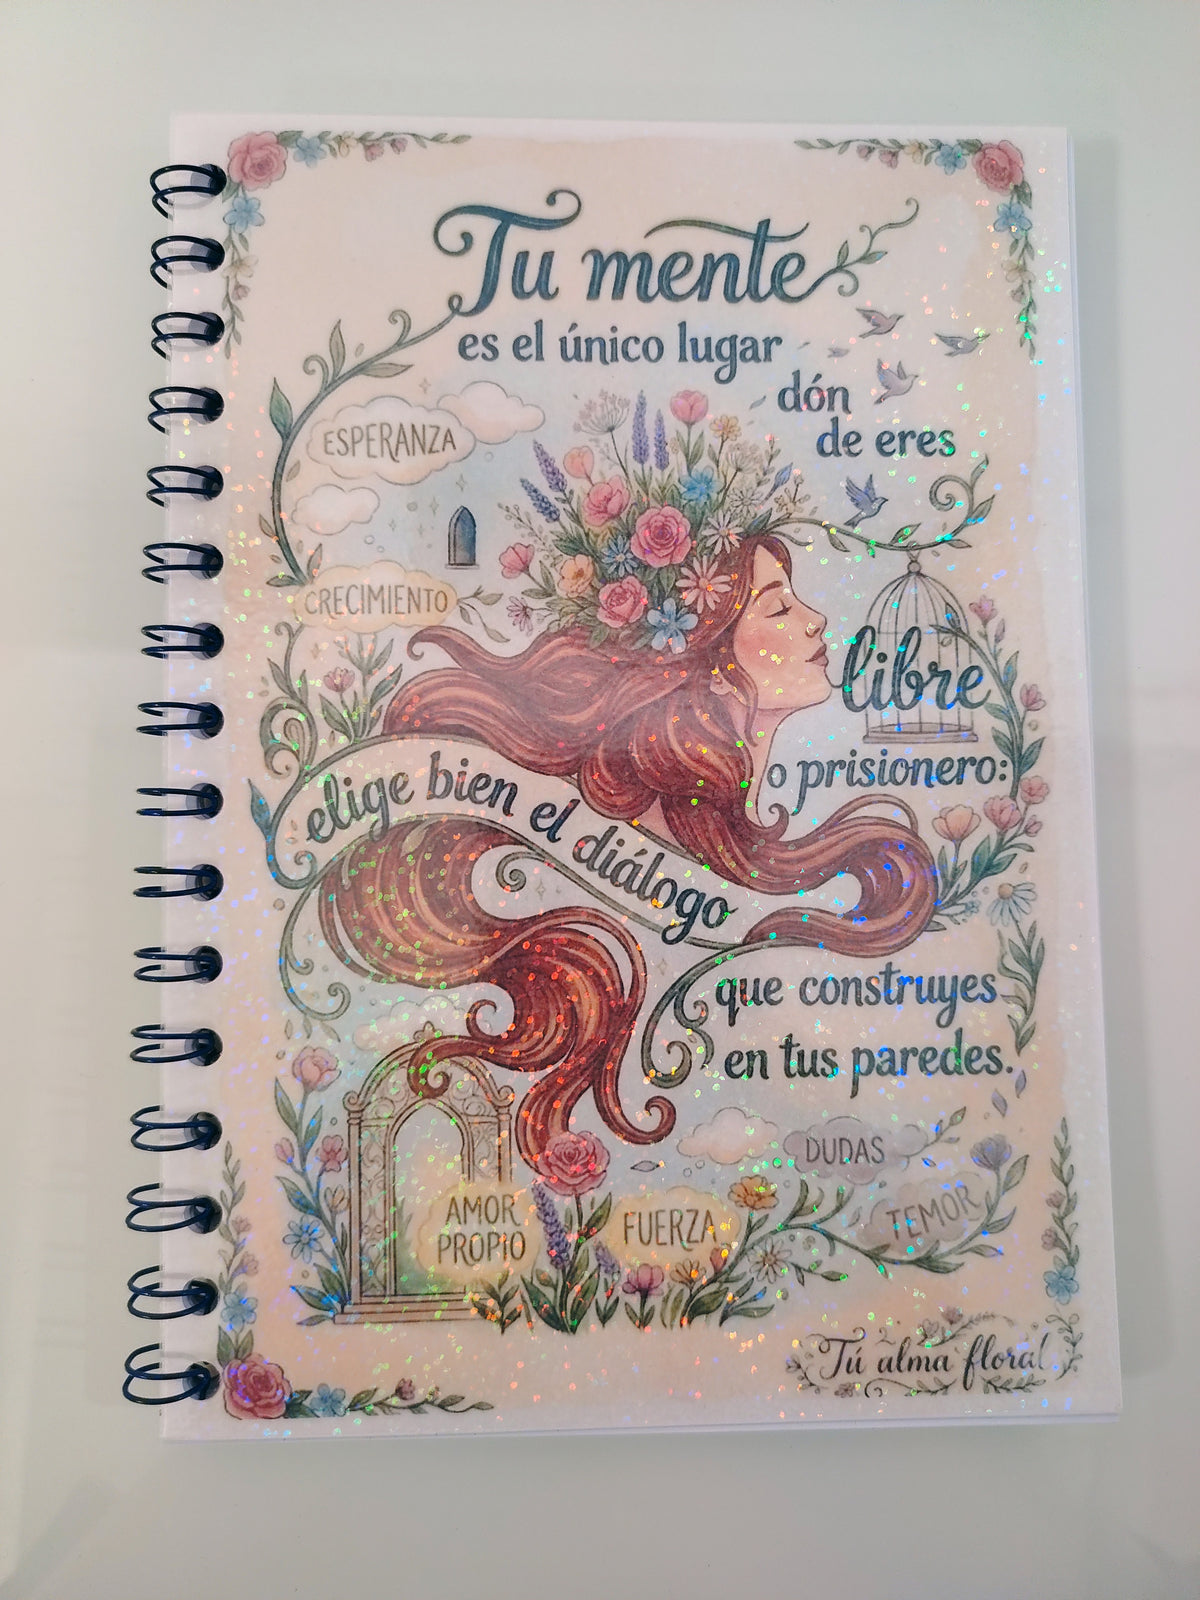 Tu mente
es el único lugar
dón
de eres
ESPERANZA
CRECIMIENTO
libre
o prisionero:
elige bien el diálogo
que construyes
en tus paredes.
DUDAS
TEMOR
AMOR
PROPIO
FUERZA
Tú alma floral